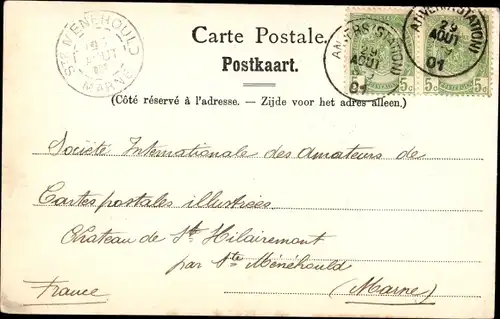 Carte Postale.
Postkaart.
(Côté réservé à l'adresse. – Zijde voor het adres alleen.)
STE MENEHOULD
AOUT
MARNE
ANVERS (STATION)
29
AOUT
01
ANVERS (STATION)
29
AOUT
01
5c 5c
Société Internationale des Amateurs de
Cartes postales illustrées
Château de St Hilairemont
par Ste Ménéhould
France (Marne)